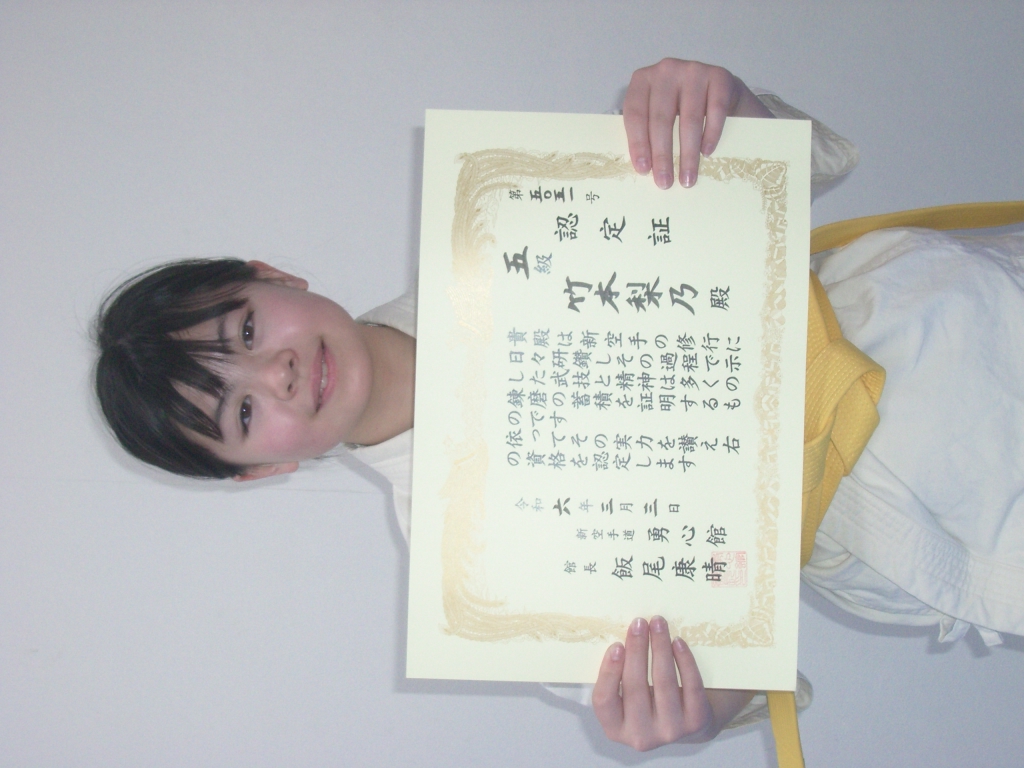 第五〇五一号
認定証
五級
竹本梨乃殿
貴殿は新空手の修行に
日々研鑽しその過程で示
した武技と精神は多くの
錬磨の蓄積を証明するも
のです
依ってその実力を讃え右
の資格を認定します
令和六年三月三日
新空手道勇心館
館長飯尾康晴